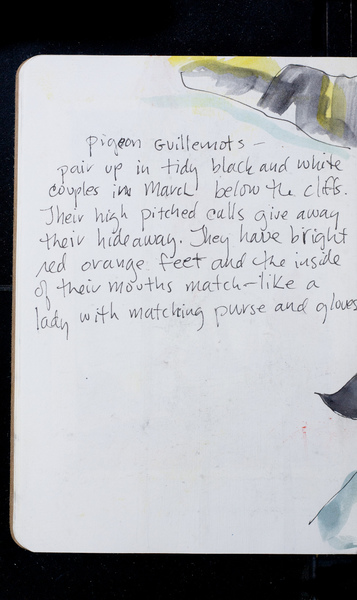 pigeon Guillemots —
pair up in tidy black and white
couples in March below the cliffs.
Their high pitched calls give away
their hideaway. They have bright
red orange feet and the inside
of their mouths match—like a
lady with matching purse and gloves